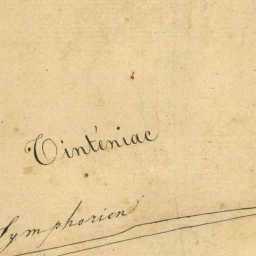 Tinténiac
Symphorien